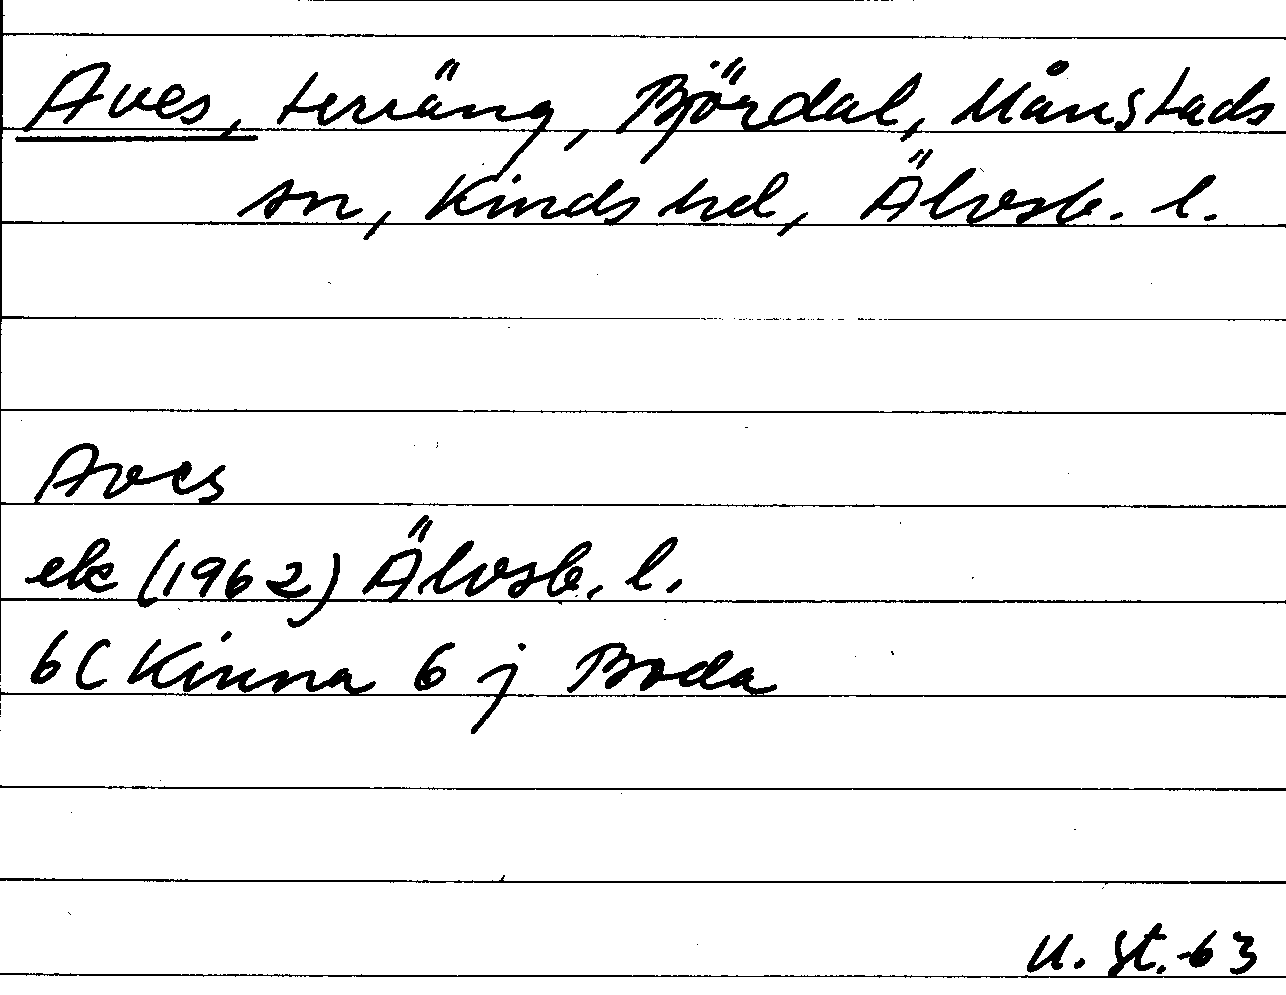 Aves, terräng, Björdal, Månstads
sn, Kinds hd, Älvsb. l.
Aves
ek (1962) Älvsb. l.
6C Kinna 6 j Boda
U. St. -63